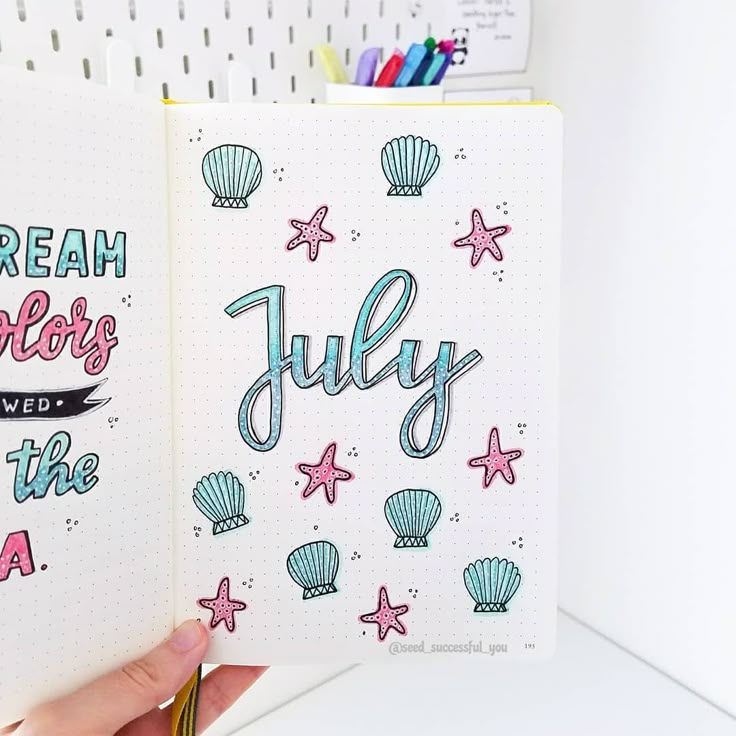 REAM
olors
WED •
the
A.
July
@seed_successful_you
195